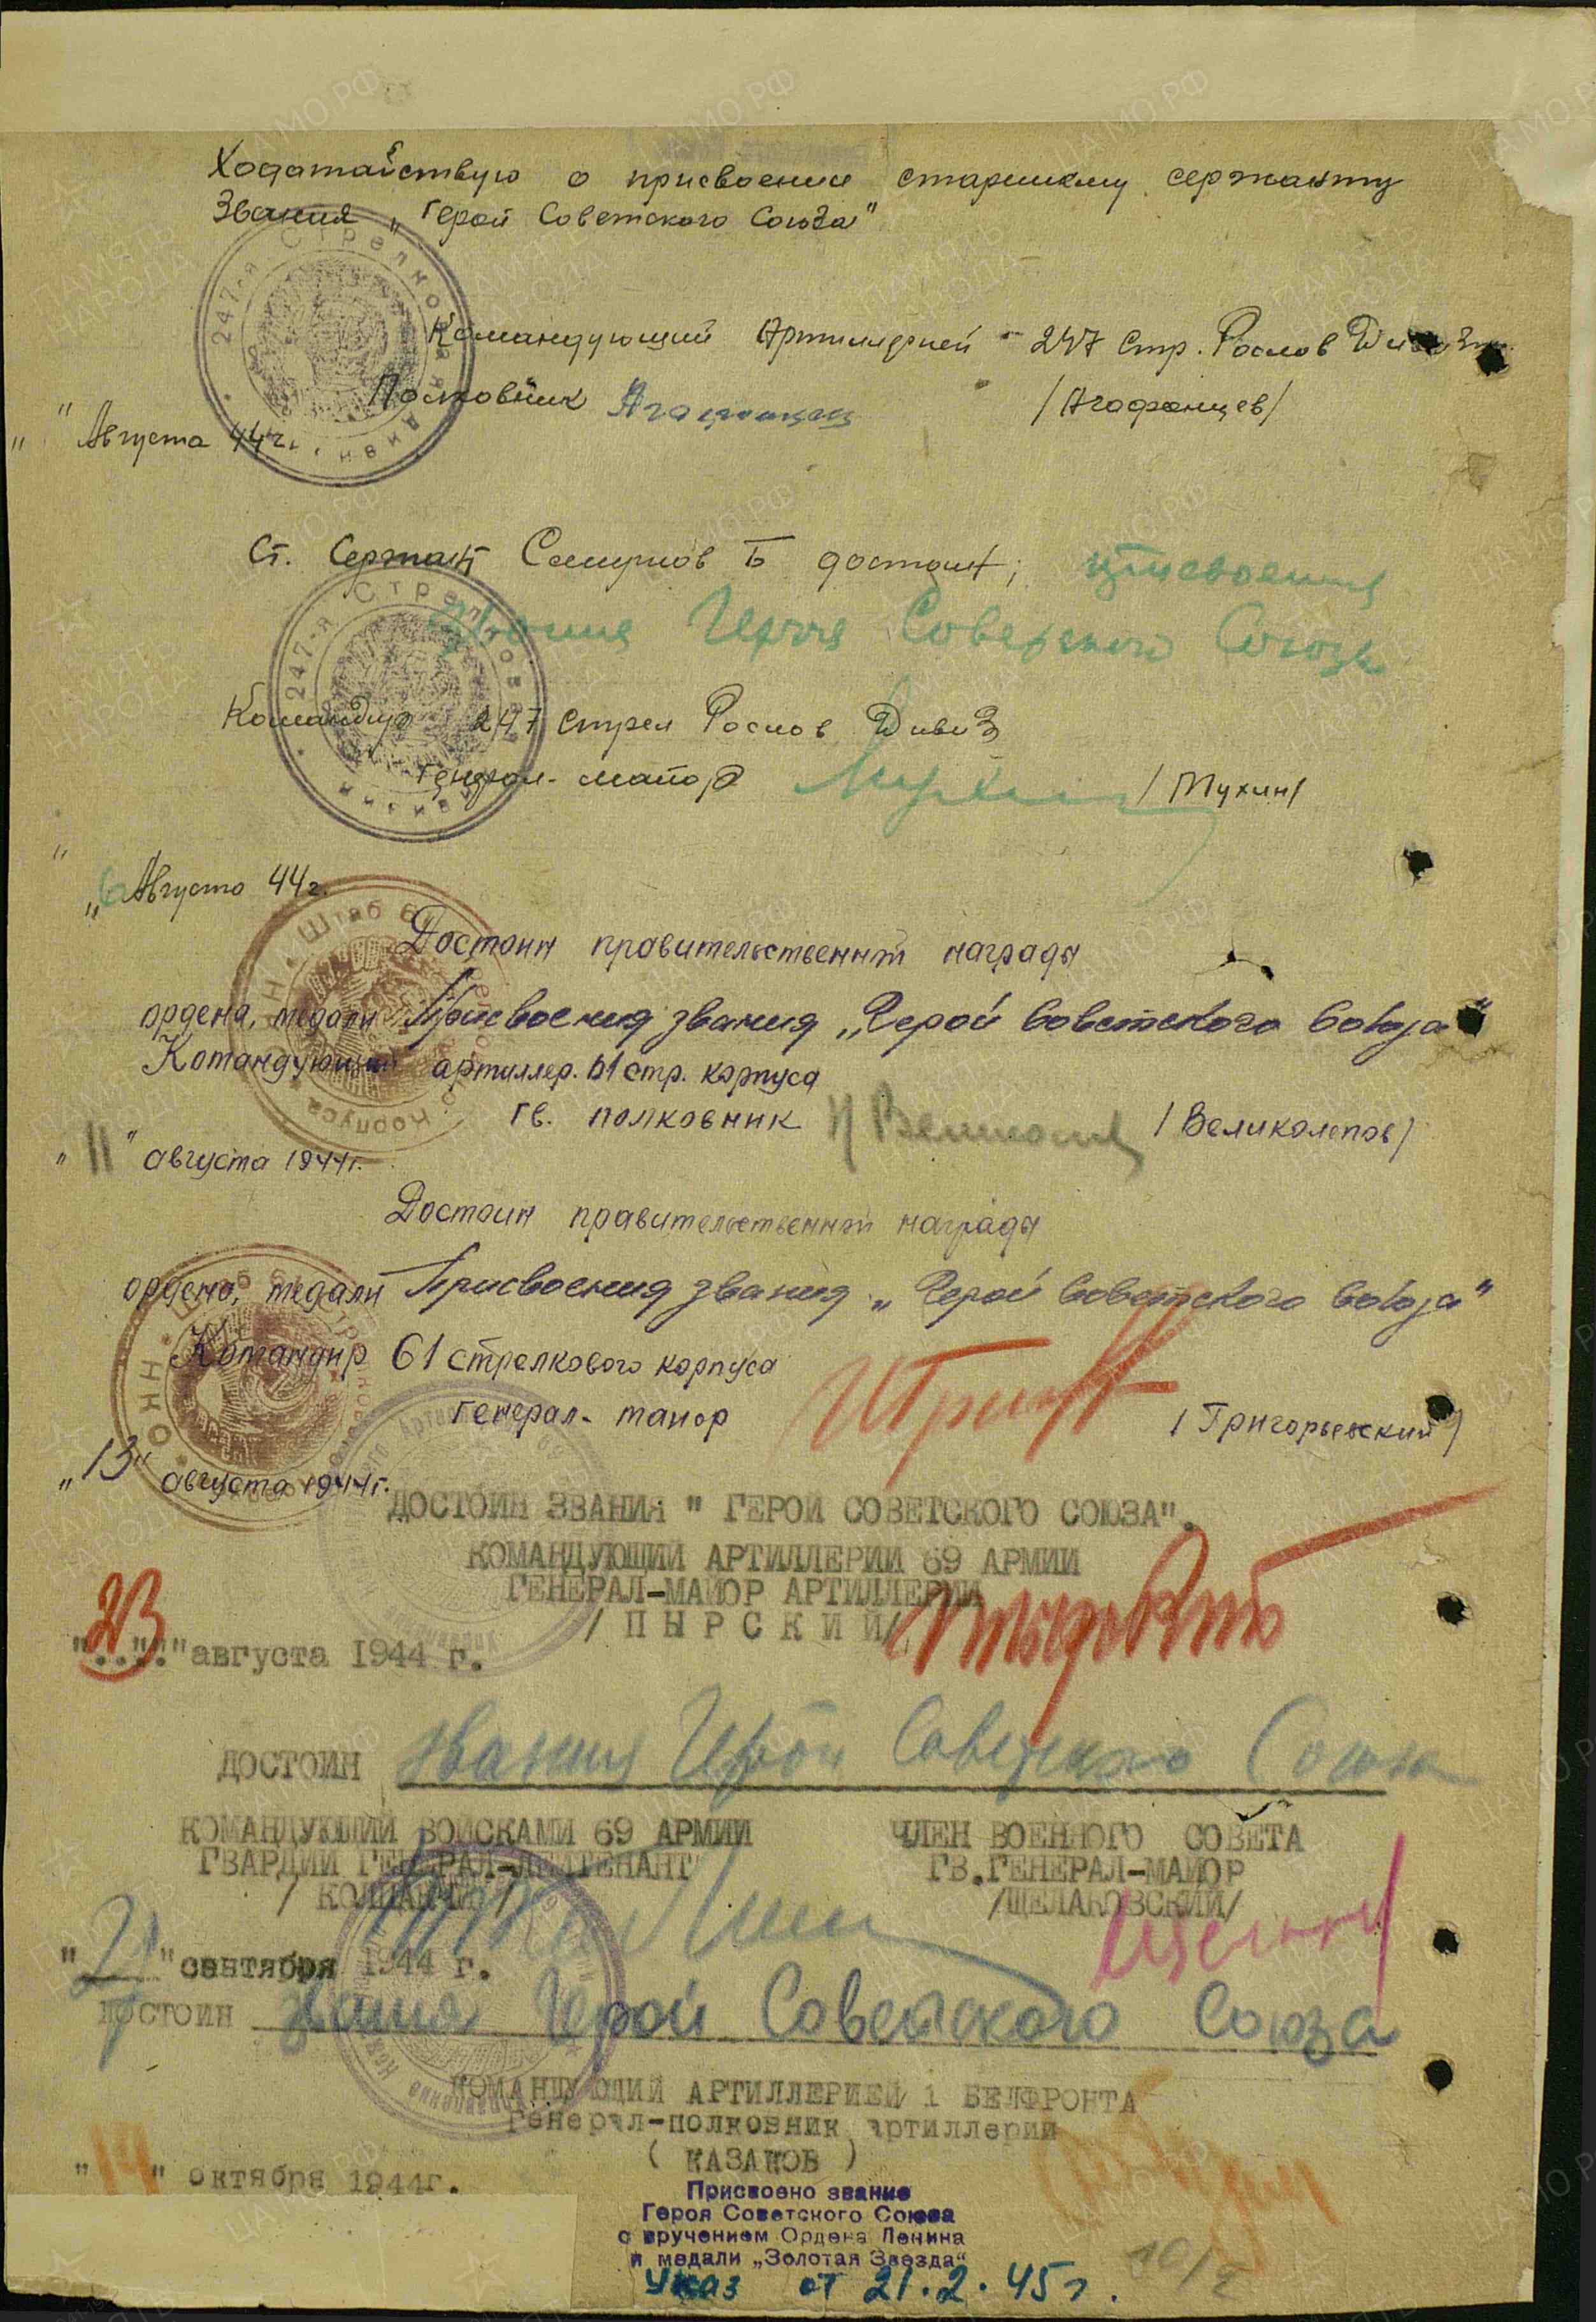 Ходатайствую о присвоении старшему сержанту
Звания „Герой Советского Союза"
Командующий Артиллерией - 247 Стр. Рослов Дивизии
Полковник /Агафонцев/
„ " Августа 44г.
Ст. Сержант Достоин; присвоения
Звание Героя Советского Союза
Командир 247 Стрел Рослов Дивиз
Генерал-майор /Мухин/
„6 Августа 44г.
Достоин правительственной награды
ордена, медали Присвоения звания „Герой Советского Союза"
Командующий артиллер. 61 стр. корпуса
гв. полковник /Великолепов/
„11" августа 1944г.
Достоин правительственной награды
ордена, медали Присвоения звания „Герой Советского Союза"
Командир 61 стрелкового корпуса
генерал-майор /Григорьевский/
„13" августа 1944г.
ДОСТОИН ЗВАНИЯ " ГЕРОЙ СОВЕТСКОГО СОЮЗА".
КОМАНДУЮЩИЙ АРТИЛЛЕРИИ 69 АРМИИ
ГЕНЕРАЛ-МАЙОР АРТИЛЛЕРИИ
/ П Ы Р С К И Й/
"23" августа 1944 г.
ДОСТОИН звания Герой Советского Союза
КОМАНДУЮЩИЙ ВОЙСКАМИ 69 АРМИИ ЧЛЕН ВОЕННОГО СОВЕТА
ГВАРДИИ ГЕНЕРАЛ-ЛЕЙТЕНАНТ ГВ.ГЕНЕРАЛ-МАЙОР
/ КОЛПАКЧИ / /ЩЕЛАКОВСКИЙ/
сентября 1944 г.
ДОСТОИН звания Герой Советского Союза
КОМАНДУЮЩИЙ АРТИЛЛЕРИЕЙ 1 БЕЛФРОНТА
генерал-полковник артиллерии
( КАЗАКОВ )
"14" октября 1944г.
Присвоено звание
Героя Советского Союза
с вручением Ордена Ленина
и медали „Золотая Звезда"
Указ от 21.2.45 г.